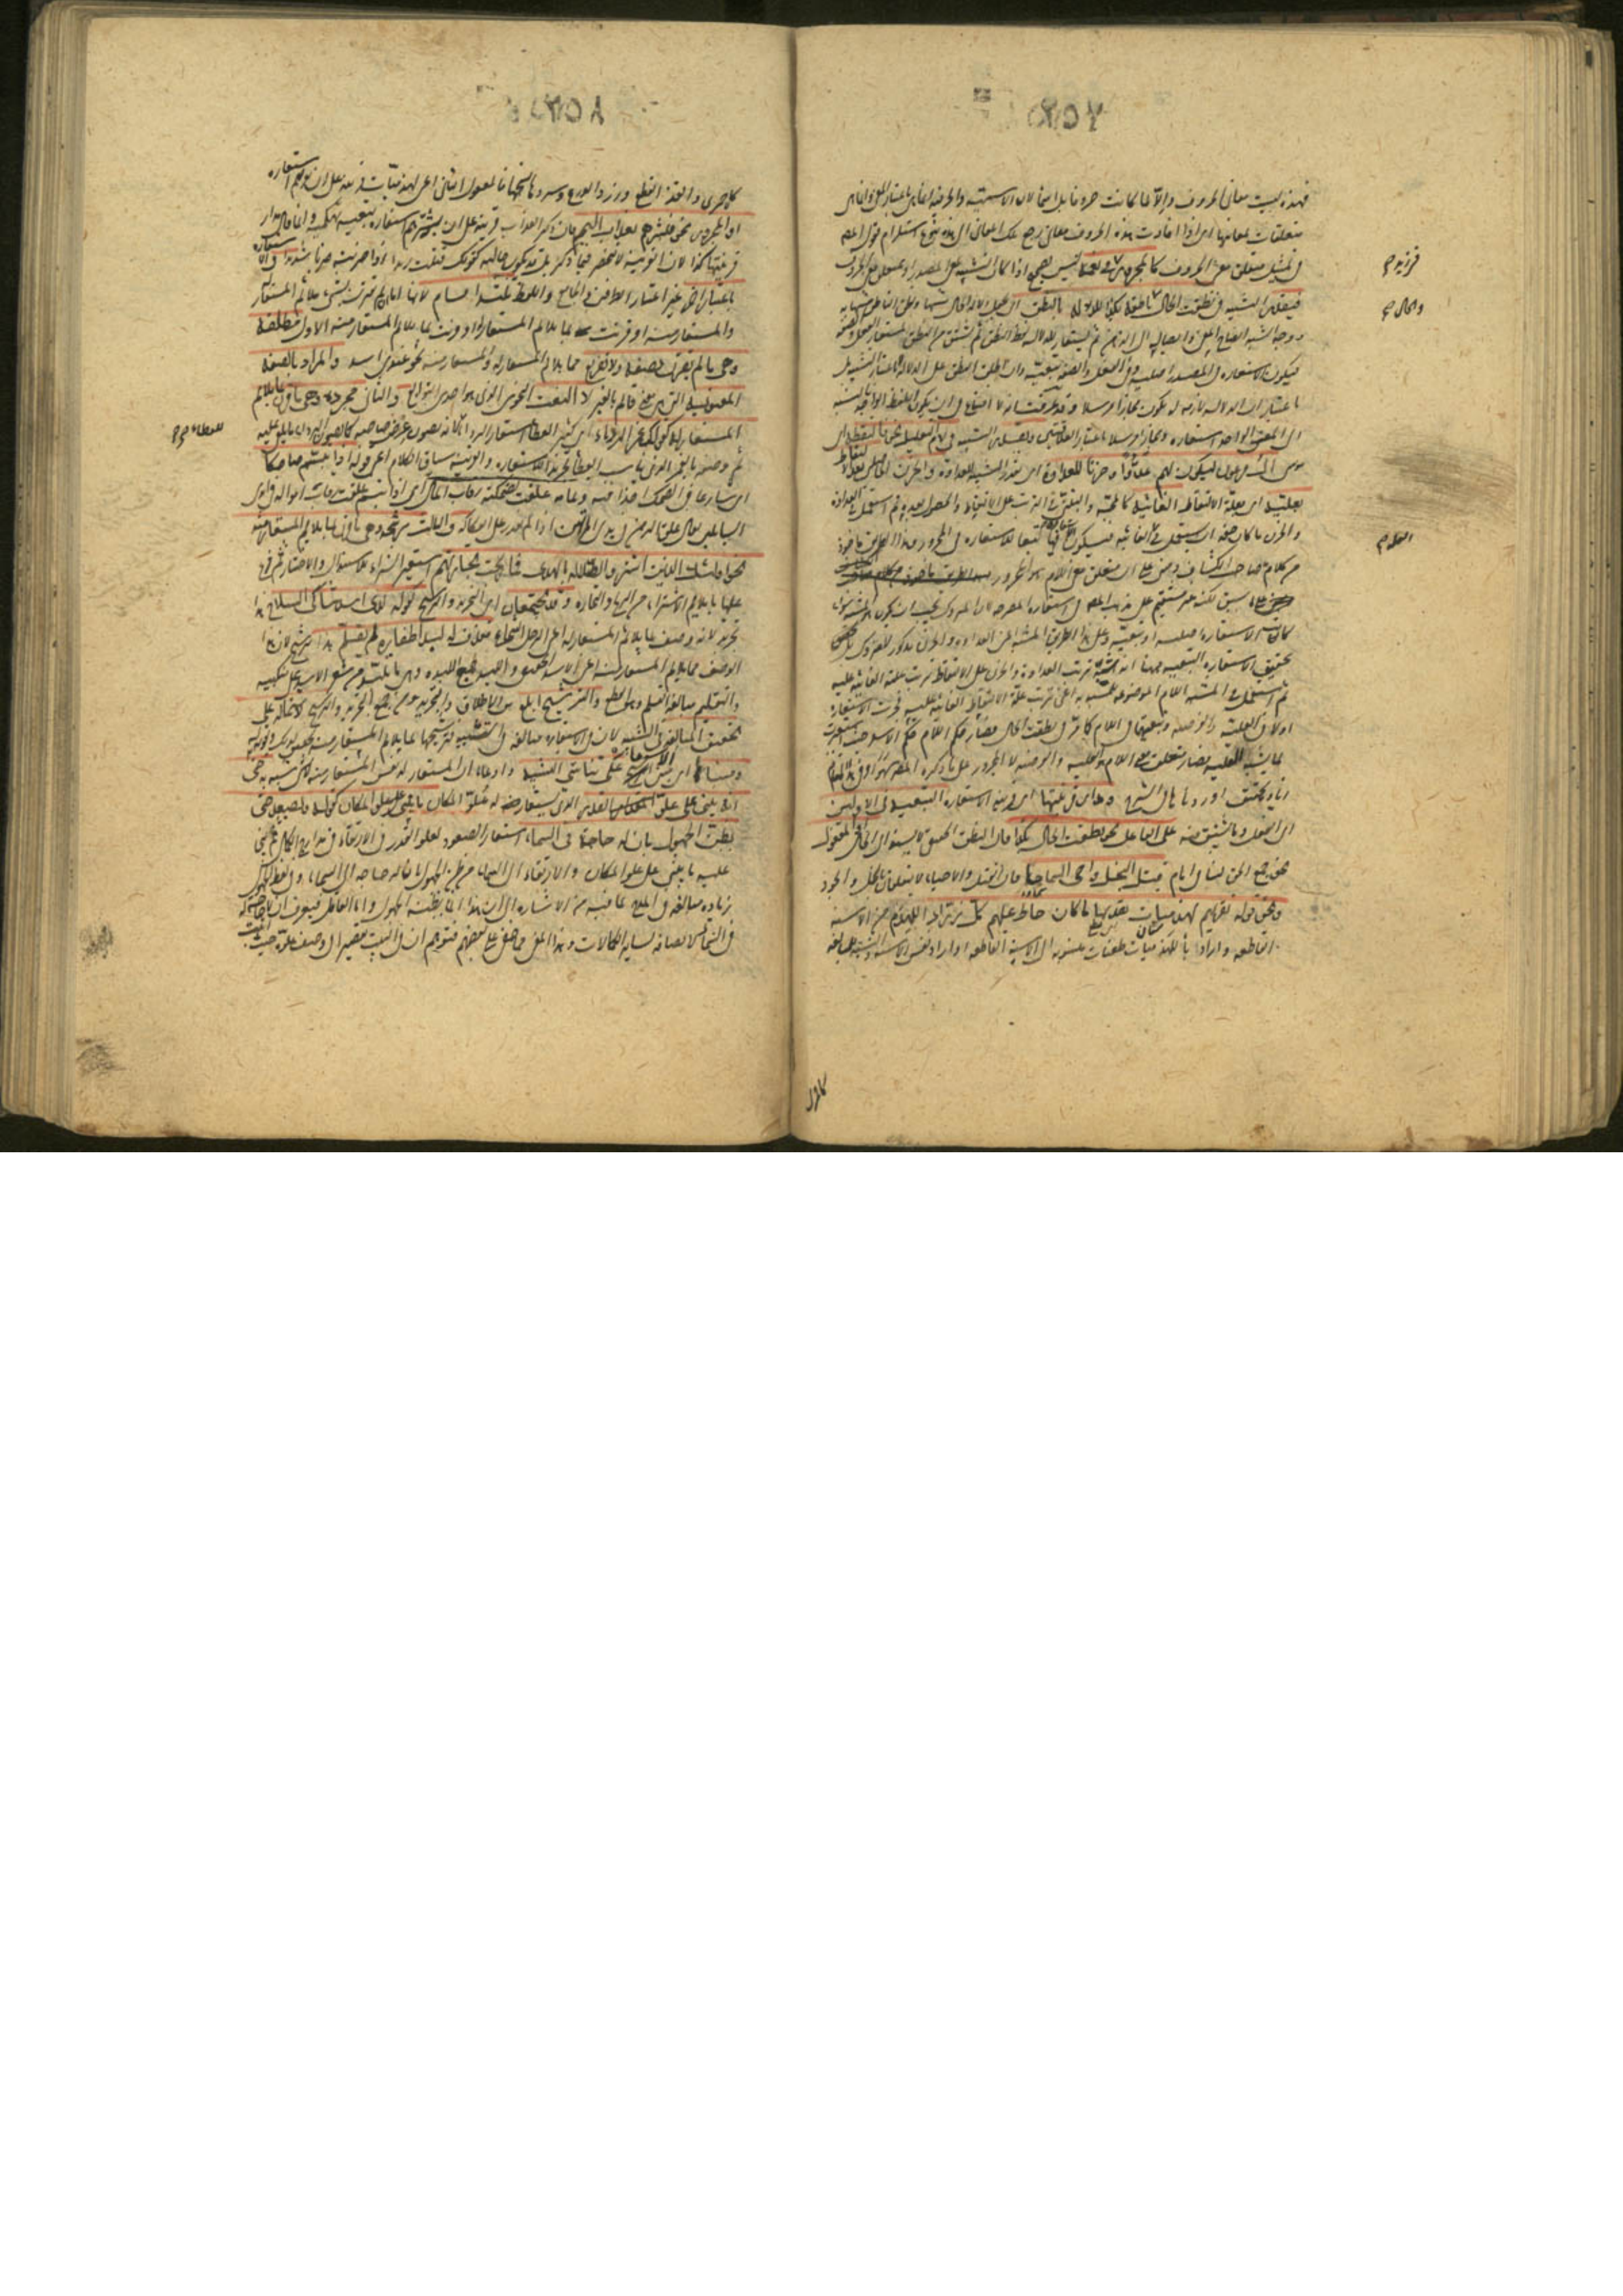 فهذه ليست معاني الحروف والا لما كانت حروفا بل اسماء لان الاسمية والحرفية انما هي باعتبار المعنى وانما هي
متعلقات لمعانيها اى اذا افادت هذه الحروف معاني رجع تلك المعاني الى هذه بنوع استلزام فقول المص
في تمثيل متعلق معنى الحروف كالمجرور في نعمة ليس بصحيح اذا كان التشبيه لمعنى المصدر ولمتعلق معنى الحروف
في زيد صح
فيقدر التشبيه في نطقت الحال ناطقة بكذا للدلالة بالنطق اى يجعل دلالة الحال مشبها ونطق الناطق مشبها به
والحال صح
ووجه الشبه ايضاح المعنى وايصاله الى الذهن ثم يستعار للدلالة لفظ النطق ثم يشتق من النطق المستعار الفعل والصفة
فيكون الاستعارة في المصدر اصلية وفي الفعل والصفة تبعية وان اطلق النطق على الدلالة لا باعتبار التشبيه بل
باعتبار ان الدلالة لازمة له يكون مجازا مرسلا وقد عرفت انه لا امتناع في ان يكون اللفظ الواحد بالنسبة
الى المعنى الواحد استعارة ومجازا مرسلا باعتبار العلاقتين ويقدر التشبيه في لام التعليل نحو فالتقطه اى
موسى آل فرعون ليكون لهم عدوا وحزنا للعداوة اى يقدر التشبيه للعداوة والحزن الحاصلين بعد الالتقاط
بعلته اى بعلة الالتقاط الغائية كالمحبة والتبنى في الترتب على الالتقاط والحصول بعده ثم استعمل في العداوة
والحزن ما كان حقه ان يستعمل في الغائية فيكون الاستعارة فيها تبعا للاستعارة في المجرور وهذا الطريق مأخوذ
العلة صح
من كلام صاحب الكشاف ومبنى على ان متعلق معنى اللام هو المجرور
على ما سبق لكنه غير مستقيم على مذهب المص في الاستعارة المصرحة لان المتروك يجب ان يكون هو المشبه سواء
كانت الاستعارة اصلية او تبعية وعلى هذا الطريق المشبه اعنى العداوة والحزن مذكور لا متروك بل
تحقيق الاستعارة التبعية ههنا انه شبه ترتب العداوة والحزن على الالتقاط بترتب علته الغائية عليه
ثم استعمل في المشبه اللام الموضوعة للمشبه به اعنى ترتب علة الالتقاط الغائية عليه فجرت الاستعارة
اولا في العلية والغرضية وتبعيتها في اللام كما مر في نطقت الحال فصار حكم اللام حكم الاسد حيث استعيرت
لما يشبه العلية فصار متعلق معنى اللام هو العلية والغرضية لا المجرور على ما ذكره المص سهوا وفي هذا المقام
زيادة تحقيق اوردناها في الشرح ومدار قرينتها اى قرينة الاستعارة التبعية في الاولين
اى الفعل وما يشتق منه على الفاعل نحو نطقت الحال بكذا فان النطق الحقيقي لا يسند الى الحال او المفعول
نحو جمع الحق لنا في امام قتل البخل واحيى السماحا فان القتل والاحياء لا يتعلقان بالبخل والجود
ونحو قوله نقريهم لهذميات نقد بها ما كان خاط عليهم كل زراد اللهذم من الاسنة
القاطع واراد بلهذميات طعنات منسوبة الى الاسنة القاطعة او اراد نفس الاسنة والنسبة للمبالغة
كاحمرى
كاحمرى والقد القطع وزرد الدرع وسردها نسجها فالمفعول الثانى اعنى لهذميات قرينة على ان نقريهم استعارة
او المجرور نحو فبشرهم بعذاب اليم فان ذكر العذاب قرينة على ان بشر استعارة تبعية تهكمية وانما قال ومدار
قرينتها كذا لان القرينة لا تنحصر فيما ذكر بل قد يكون حالية كقولك قتلت زيدا اذا ضربته ضربا شديدا والاستعارة
باعتبار اخر غير اعتبار الطرفين والجامع واللفظ ثلثة اقسام لانها اما ان لم تقترن بشيء يلائم المستعار له
والمستعار منه او قرنت بما يلائم المستعار له او قرنت بما يلائم المستعار منه الاول مطلقة
وهي ما لم يقترن بصفة ولا تفريع مما يلائم المستعار له والمستعار منه نحو عندى اسد والمراد بالصفة
المعنوية التى هى معنى قائم بالغير لا النعت النحوى الذى هو احد التوابع والثانى مجردة وهي ما قرن بما يلائم
المستعار له كقوله غمر الرداء اى كثير العطاء استعار الرداء لانه يصون عرض صاحبه كما يصون الرداء ما يلقى عليه
للعطاء صح
ثم وصفه بالغمر الذى يناسب العطاء تجريدا للاستعارة والقرينة سياق الكلام اعنى قوله اذا تبسم ضاحكا
اى شارعا في الضحك آخذا فيه وتمامه غلقت لضحكته رقاب المال اى اذا تبسم غلقت رقاب امواله في ايدى
السائلين يقال غلق الرهن في يد المرتهن اذا لم يقدر على انفكاكه والثالث مرشحة وهي ما قرن بما يلائم المستعار منه
نحو اولئك الذين اشتروا الضلالة بالهدى فما ربحت تجارتهم استعير الشراء للاستبدال والاختيار ثم فرع
عليها ما يلائم الاشتراء من الربح والتجارة وقد يجتمعان اى التجريد والترشيح كقوله لدى اسد شاكى السلاح هذا
تجريد لانه وصف بما يلائم المستعار له اعنى الرجل الشجاع مقذف له لبد اظفاره لم تقلم هذا ترشيح لان هذا
الوصف مما يلائم المستعار منه اعنى الاسد الحقيقى واللبد جمع اللبدة وهى ما تلبد من شعر الاسد على منكبيه
والتقليم مبالغة القلم وهو القطع والترشيح ابلغ من الاطلاق والتجريد ومن جمع التجريد والترشيح لاشتماله على
تحقيق المبالغة في التشبيه لان في الاستعارة مبالغة في التشبيه فترشيحها بما يلائم المستعار منه تحقيق لذلك وتقوية
ومبناه اى مبنى الترشيح على تناسى التشبيه وادعاء ان المستعار له نفس المستعار منه لا شيء شبيه به حتى
انه يبنى على علو القدر الذى يستعار له علو المكان ما يبنى على علو المكان كقوله ويصعد حتى
يظن الجهول بان له حاجة في السماء استعار الصعود لعلو القدر والارتقاء في مدارج الكمال ثم بنى
عليه ما يبنى على علو المكان والارتقاء الى السماء من ظن الجهول ان له حاجة الى السماء وفي لفظ الجهول
زيادة مبالغة في المدح لما فيه من الاشارة الى ان هذا انما يظنه الجهول واما العاقل فيعرف ان لا حاجة له
في السماء لاتصافه بسائر الكمالات وهذا المعنى مما خفى على بعضهم فتوهم ان في البيت تقصيرا في وصف علوه حيث